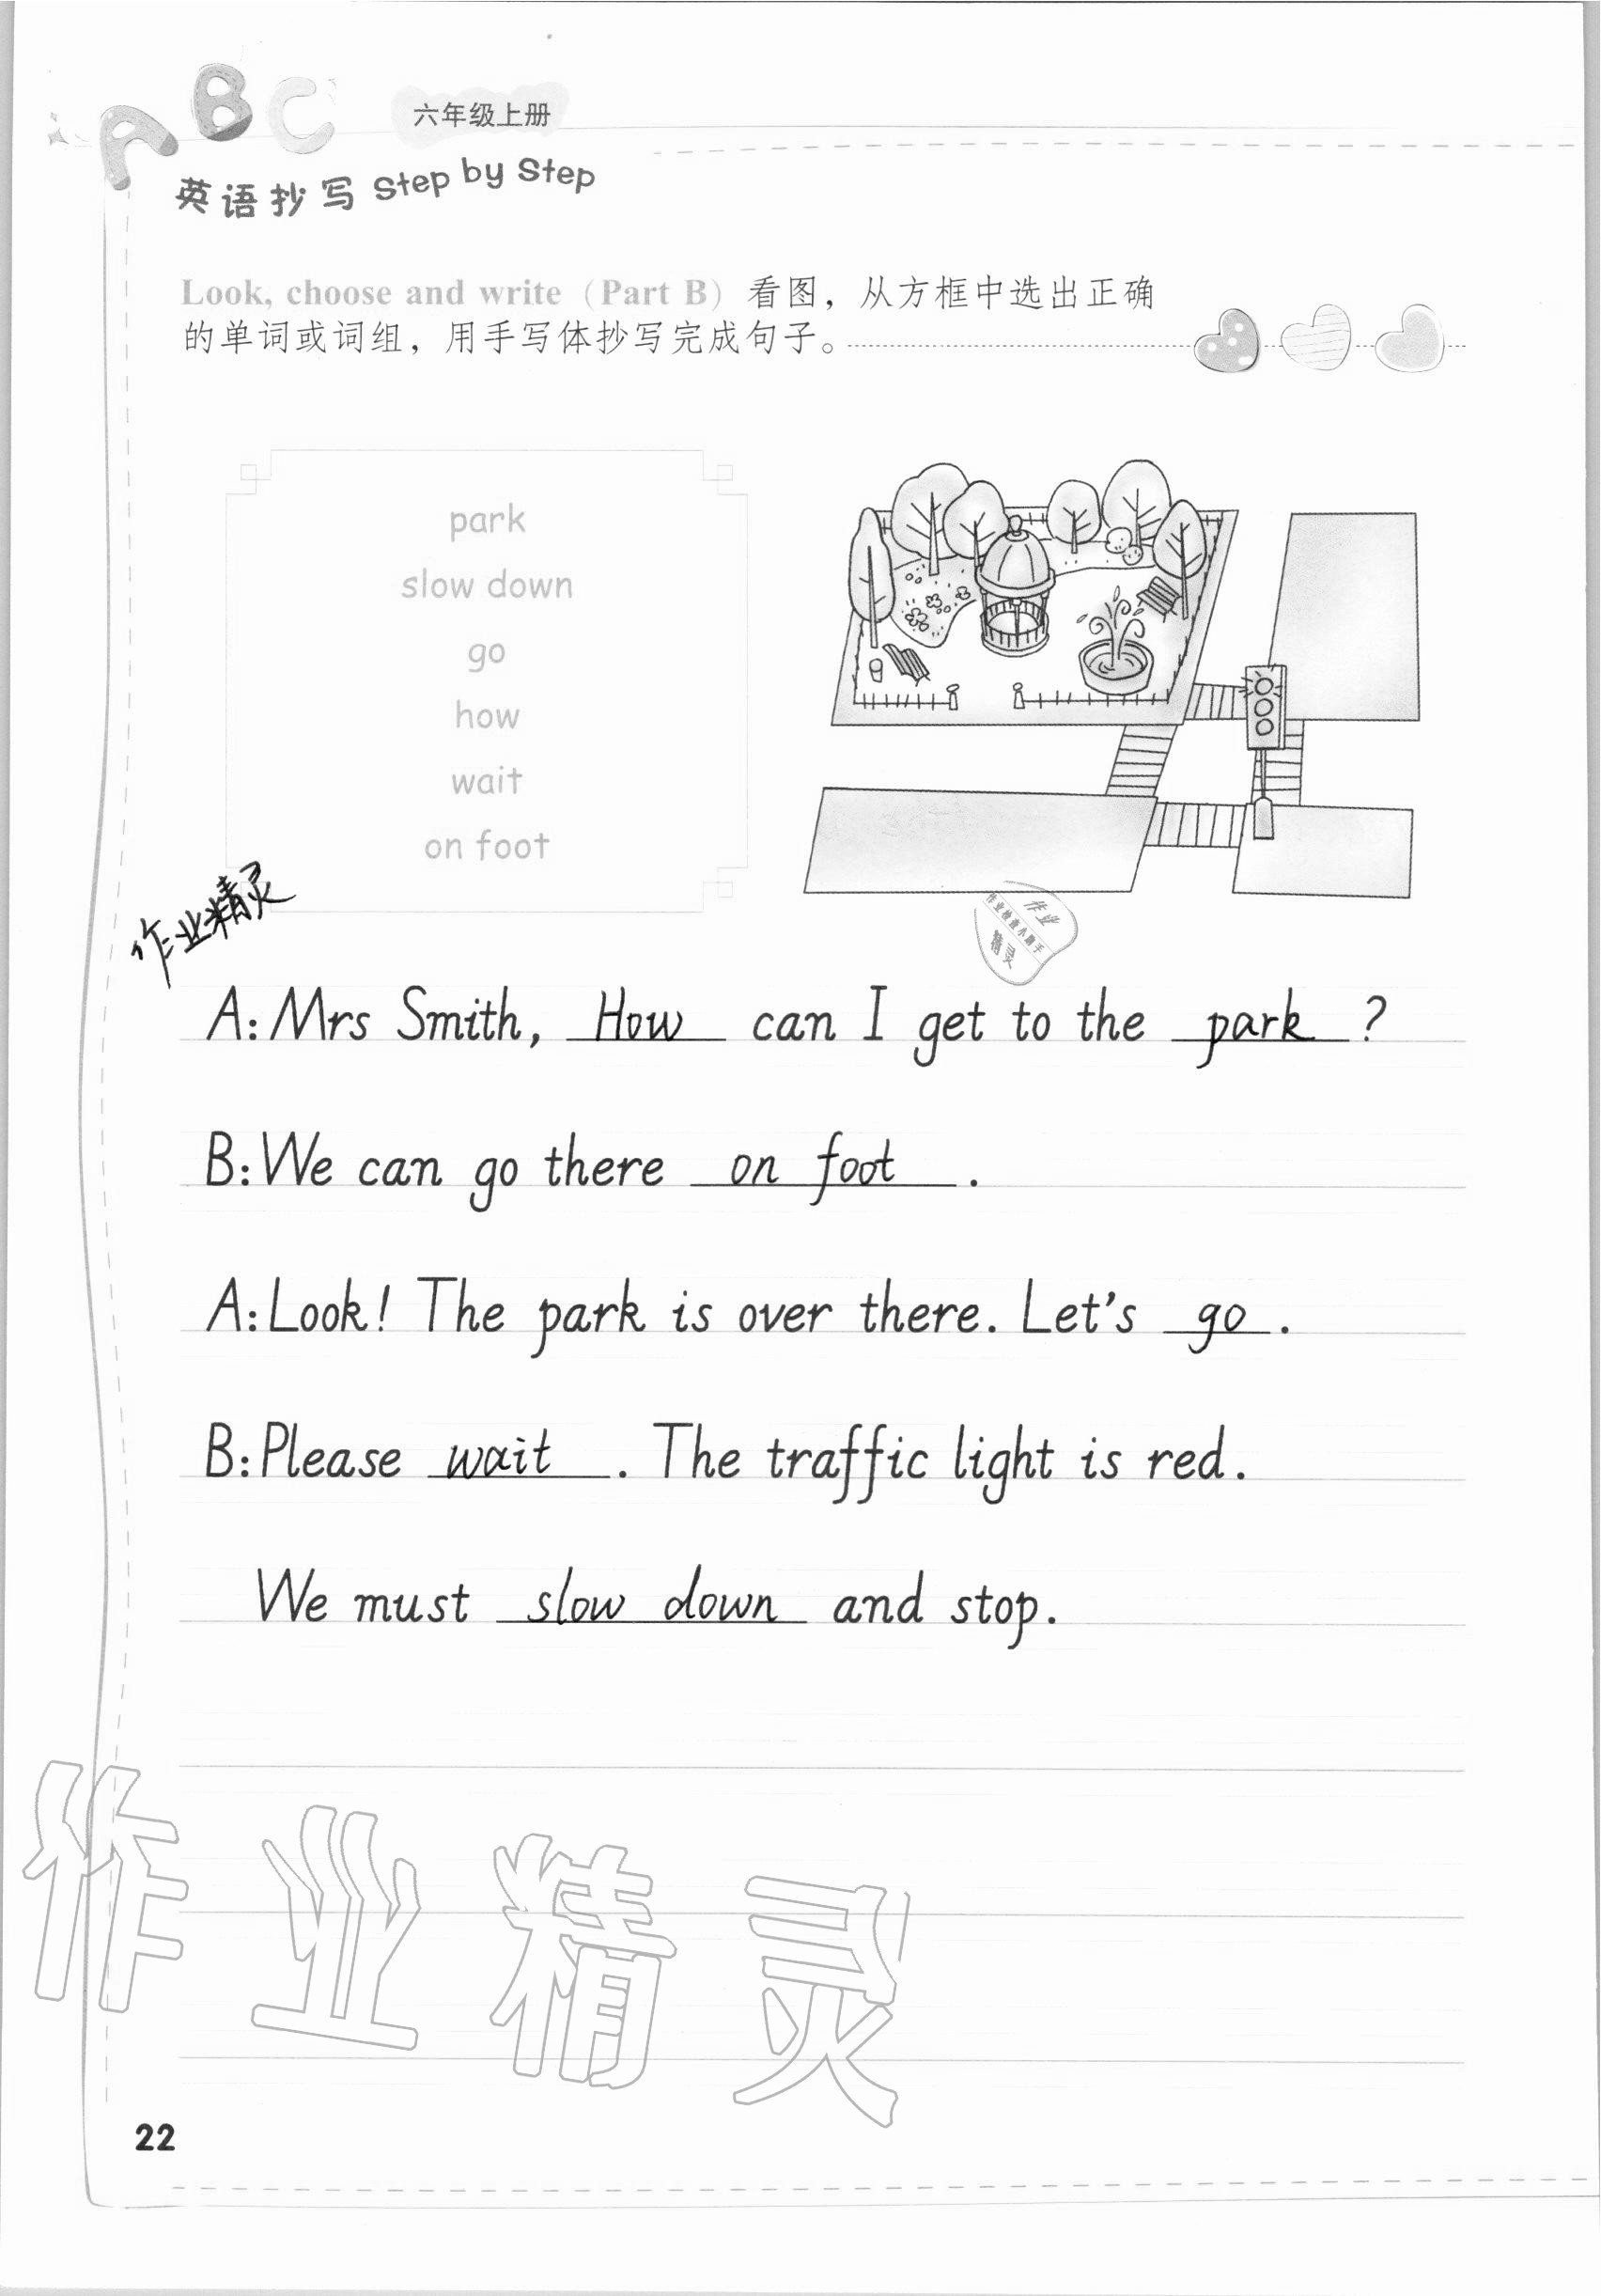 ABC
六年级上册
英语抄写 Step by Step
Look, choose and write (Part B) 看图，从方框中选出正确
的单词或词组，用手写体抄写完成句子。
park
slow down
go
how
wait
on foot
作业精灵
作业
作业检查小助手
精灵
A: Mrs Smith, How can I get to the park ?
B: We can go there on foot .
A: Look! The park is over there. Let's go .
B: Please wait . The traffic light is red.
We must slow down and stop.
作业精灵
22